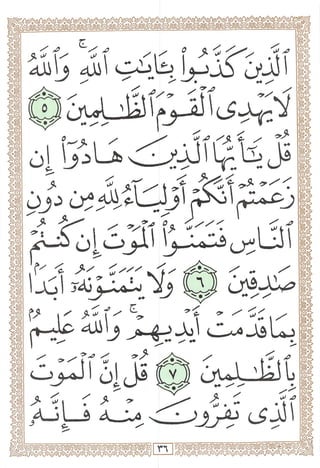 ٱلَّذِينَ كَذَّبُوا۟ بِـَٔايَـٰتِ ٱللَّهِ ۚ وَٱللَّهُ
لَا يَهْدِى ٱلْقَوْمَ ٱلظَّـٰلِمِينَ ٥
قُلْ يَـٰٓأَيُّهَا ٱلَّذِينَ هَادُوٓا۟ إِن
زَعَمْتُمْ أَنَّكُمْ أَوْلِيَآءُ لِلَّهِ مِن دُونِ
ٱلنَّاسِ فَتَمَنَّوُا۟ ٱلْمَوْتَ إِن كُنتُمْ
صَـٰدِقِينَ ٦ وَلَا يَتَمَنَّوْنَهُۥٓ أَبَدًۢا
بِمَا قَدَّمَتْ أَيْدِيهِمْ ۚ وَٱللَّهُ عَلِيمٌۢ
بِٱلظَّـٰلِمِينَ ٧ قُلْ إِنَّ ٱلْمَوْتَ
ٱلَّذِى تَفِرُّونَ مِنْهُ فَإِنَّهُۥ
٣٦